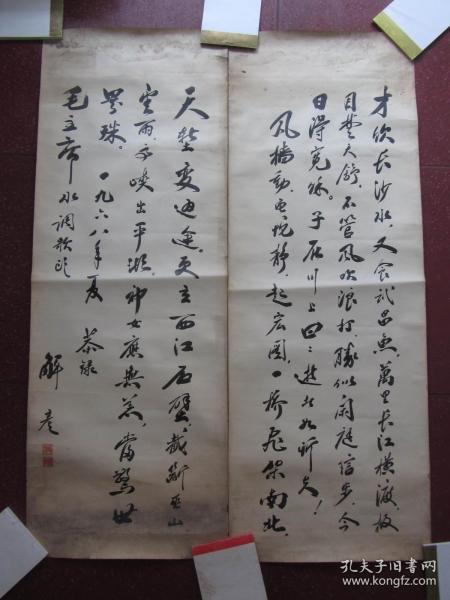 才饮长沙水，又食武昌鱼，萬里长江横渡，极
目楚天舒，不管风吹浪打，勝似闲庭信步，今
日得宽馀。子在川上曰：逝者如斯夫！
风樯動，龟蛇静，起宏图。一桥飞架南北，
天堑变通途。更立西江石壁，截断巫山
雲雨，高峡出平湖，神女應無恙，當驚世
界殊。一九六八年夏 恭録
毛主席水调歌头
解彦
孔夫子旧书网
www.kongfz.com